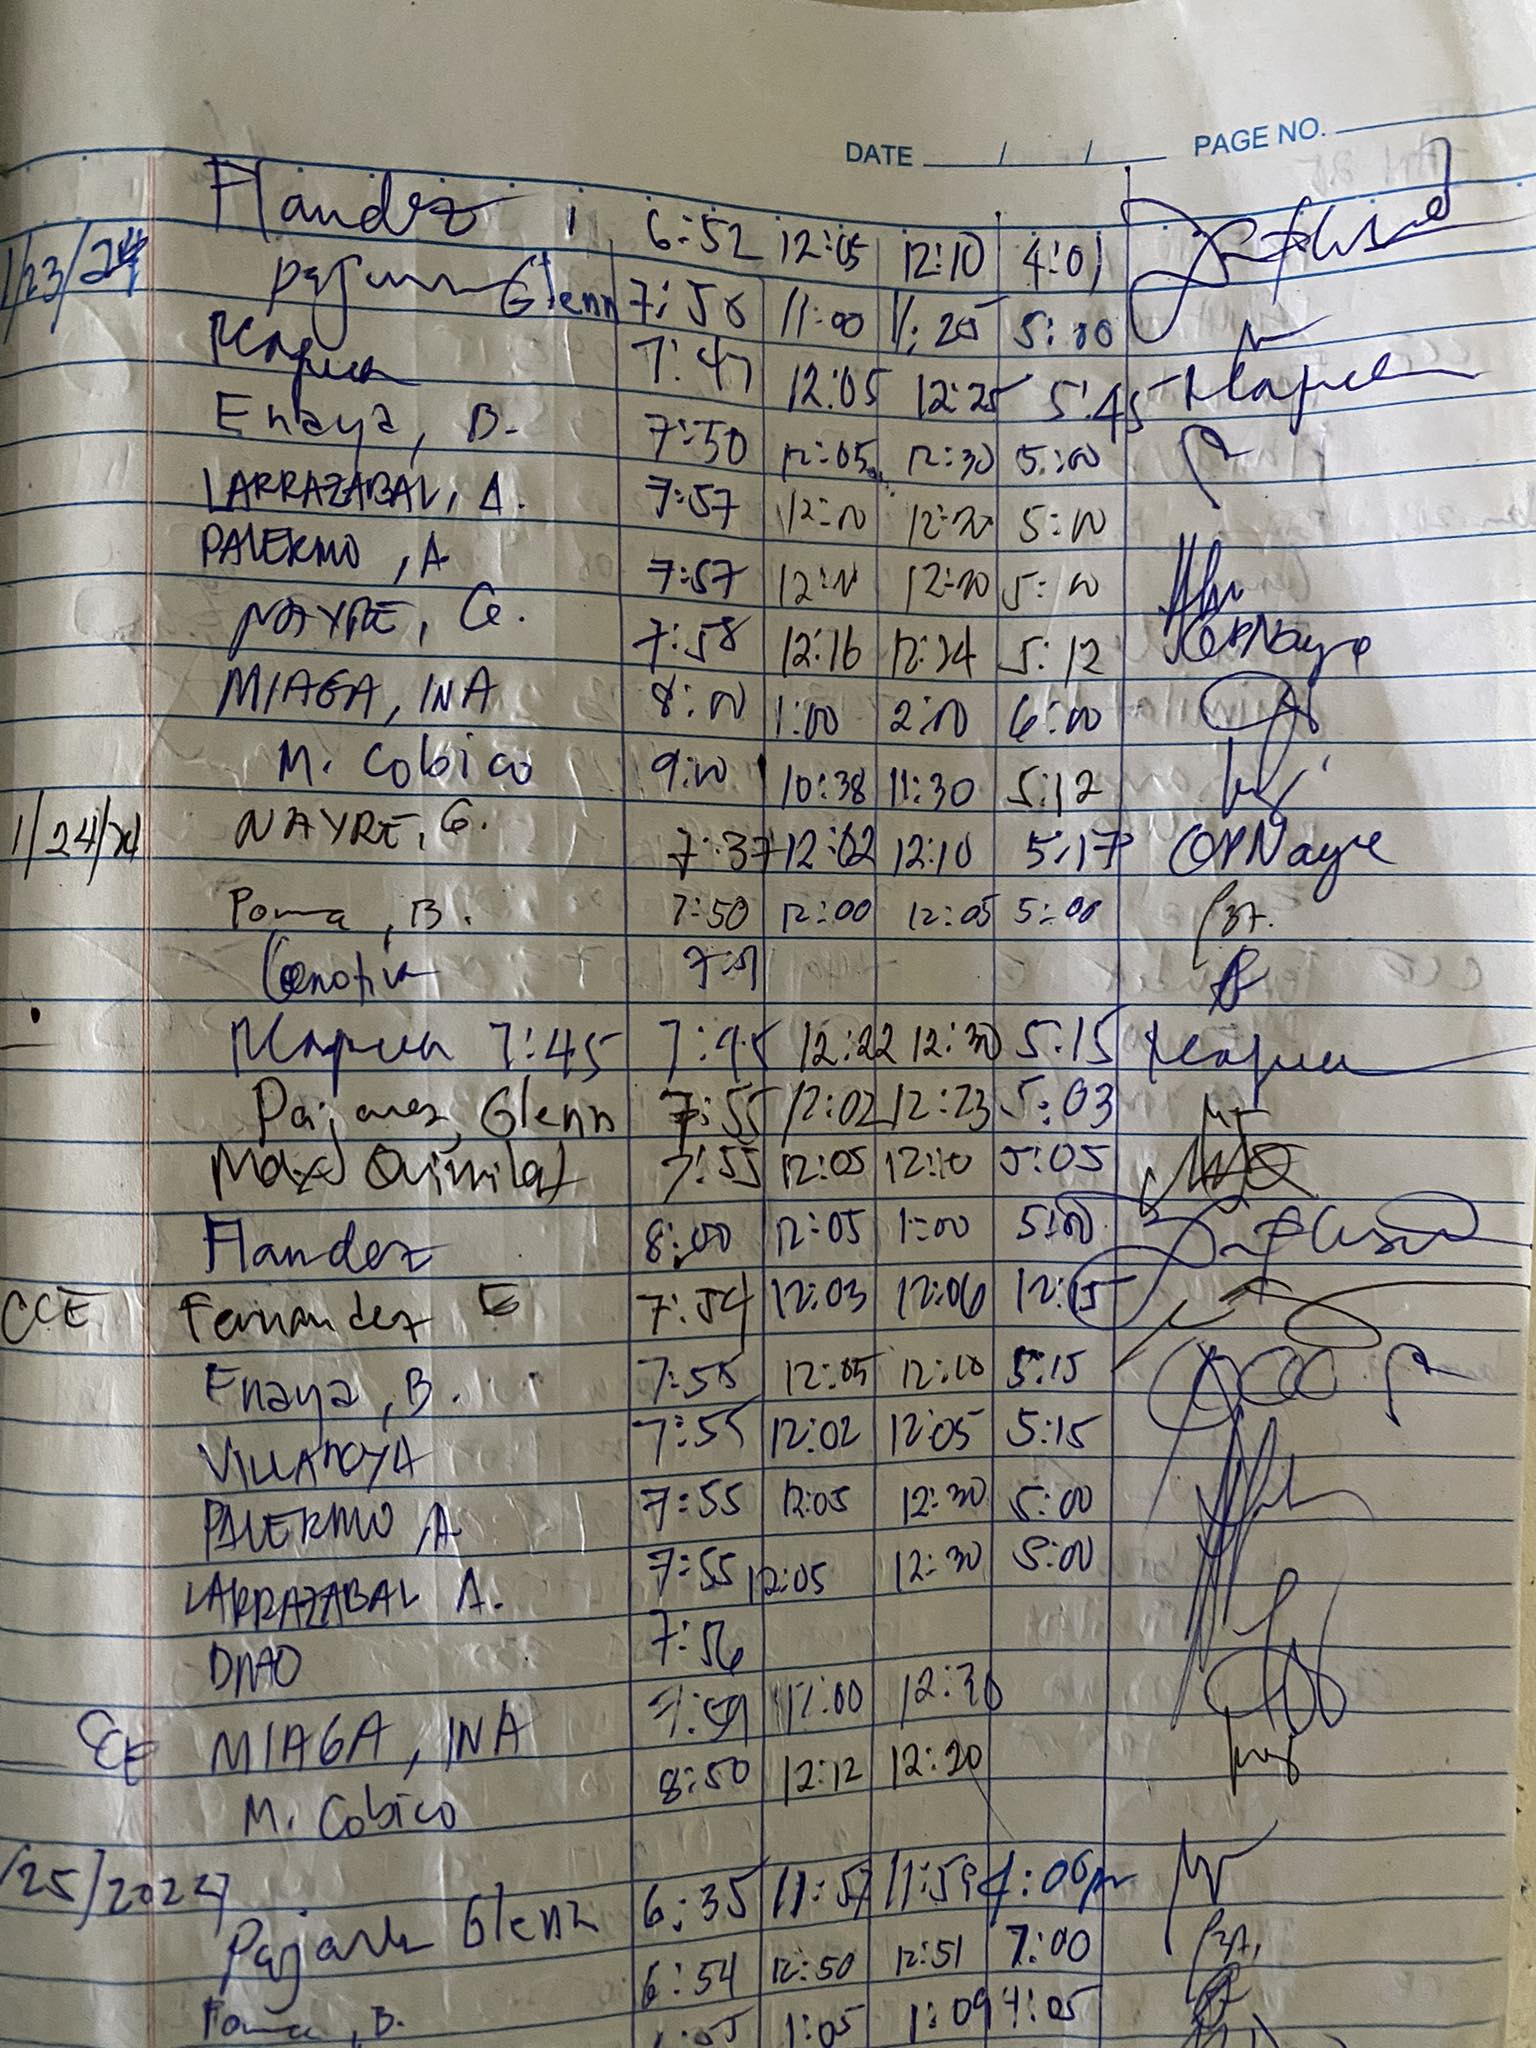 DATE / / PAGE NO.
Flandez 6:52 12:05 12:10 4:01
1/23/24 Glenn 7:58 11:00 11:25 5:00
7:47 12:05 12:25 5:45
Enaya, B. 7:50 12:05 12:30 5:00
LARRAZABAL, A. 7:57 12:00 12:20 5:00
PALERMO, A 7:57 12:00 12:20 5:00
NAYRE, G. 7:58 12:16 12:24 5:12 GRNayre
MIAGA, INA 8:00 1:00 2:00 6:00
M. Cobico 9:00 10:38 11:30 5:12
1/24/24 NAYRE, G. 7:37 12:02 12:10 5:17 GRNayre
Poma, B. 7:50 12:00 12:05 5:00
7:45 7:45 12:22 12:30 5:15
Pajares, Glenn 7:55 12:02 12:23 5:03
Max Quimilat 7:55 12:05 12:10 5:05
Flandez 8:00 12:05 1:00 5:00
CCE Fernandez E 7:54 12:03 12:06 12:15
Enaya, B. 7:55 12:05 12:10 5:15
VILLANOYA 7:55 12:02 12:05 5:15
PALERMO, A 7:55 12:05 12:30 5:00
LARRAZABAL A. 7:55 12:05 12:30 5:00
7:56
CCE MIAGA, INA 7:59 12:00 12:30
M. Cobico 8:50 12:12 12:20
/25/2024
Pajares Glenn 6:35 11:57 11:59 4:06pm
Poma, B. 6:54 12:50 12:51 7:00
1:05 1:09 4:05